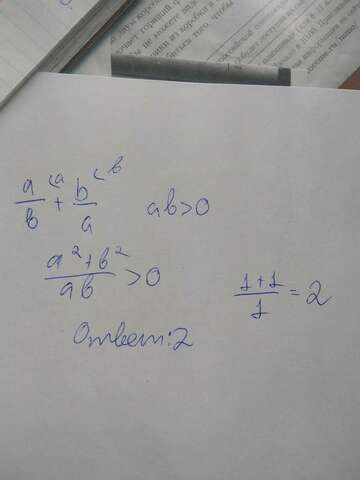 a/b (a + b/a (b ab>0
(a²+b²)/ab >0
(1+1)/1 = 2
Ответ: 2